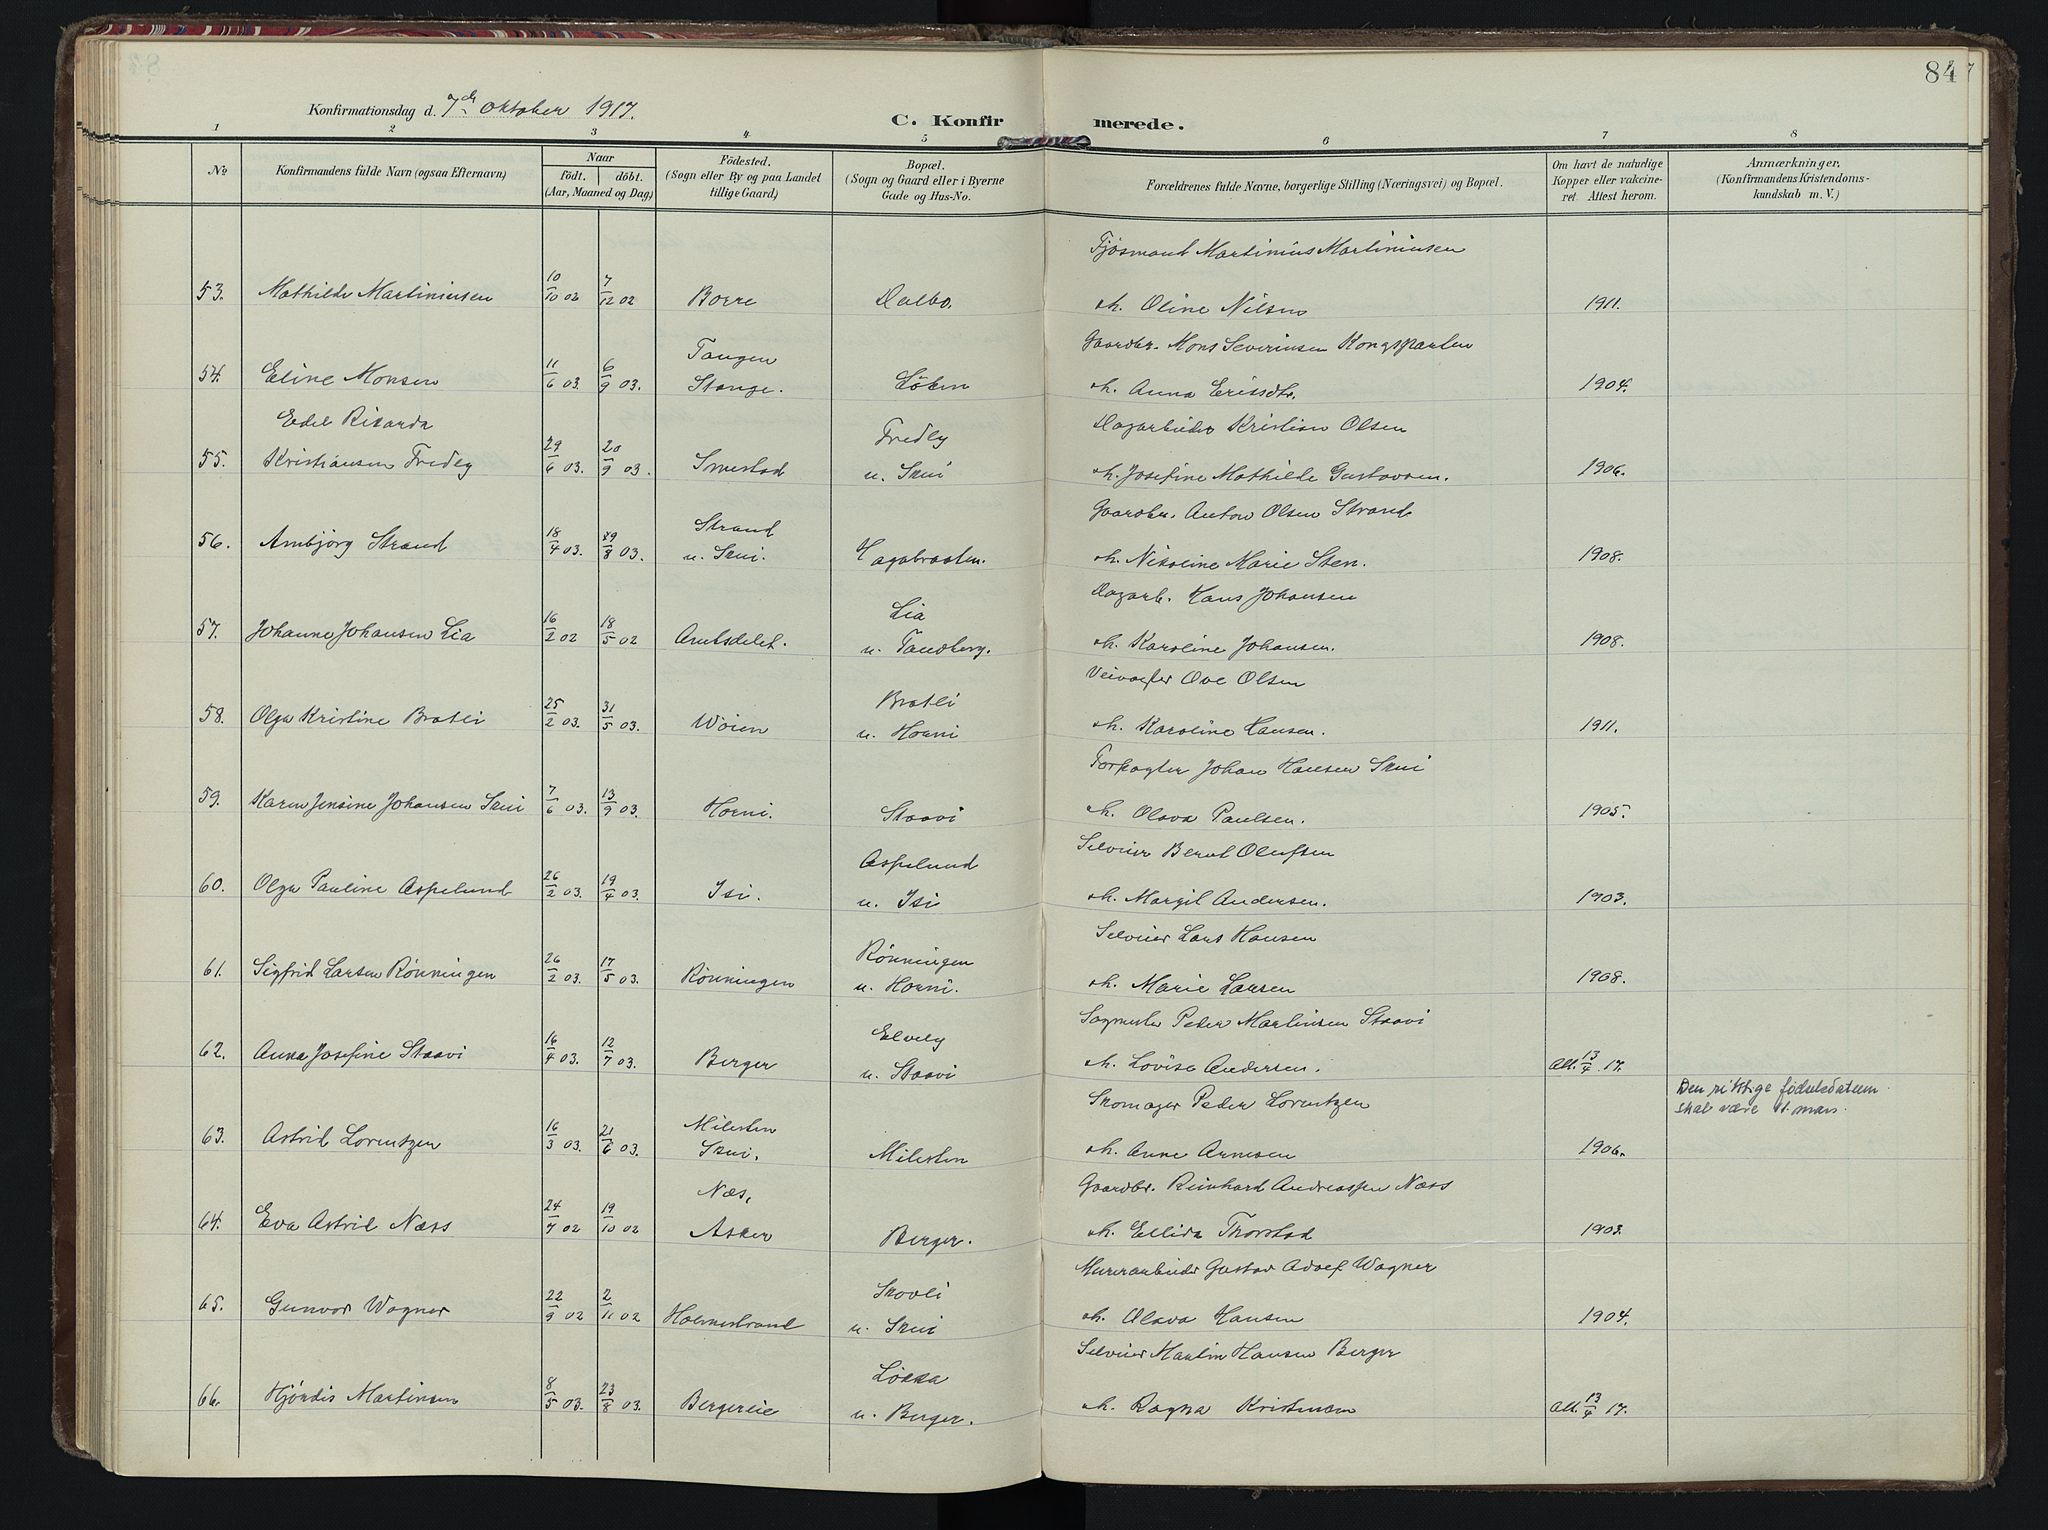 84
Konfirmationsdag d. 7de Oktober 1917.
C. Konfirmerede.
1 2 3 4 5 6 7 8
No
Konfirmandens fulde Navn (ogsaa Efternavn)
Naar
født. døbt.
(Aar, Maaned og Dag)
Födested.
(Sogn eller By og paa Landet
tillige Gaard)
Bopæl.
(Sogn og Gaard eller i Byerne
Gade og Hus-No.
Forældrenes fulde Navne, borgerlige Stilling (Næringsvei) og Bopæl.
Om havt de naturlige
Kopper eller vakcine-
ret. Attest herom.
Anmærkninger,
(Konfirmandens Kristendoms-
kundskab m. V.)
Fjøsmand Martinius Martiniusen
53. Mathilde Martiniusen 10/10 02 7/12 02 Borre Dalbo. o.h. Oline Nilsen 1911.
Tangen Gaardbr. Mons Severinsen Kongsparten
54. Eline Monsen 11/6 03. 6/9 03. Stange. Løken o.h. Anna Eriksdtr. 1904.
Edel Rikarda Fredly Dagarbeider Kristian Olsen
55. Kristiansen Fredly 29/6 03. 20/9 03. Smestad u. Skui o.h. Josefine Mathilde Gustavsen. 1906.
Strand Gaardbr. Anton Olsen Strand
56. Ambjørg Strand 18/4 03. 29/8 03. u. Skui. Hagabraaten. o.h. Nikoline Marie Sten. 1908.
Lia Dagarb. Hans Johansen
57. Johanne Johansen Lia 16/2 02 18/5 02 Amtsdelet. u. Tandberg. o.h. Karoline Johansen. 1908.
Bratli Veivogter Ove Olsen
58. Olga Kristine Bratli 25/2 03. 31/5 03. Wøien u. Horni o.h. Karoline Hansen. 1911.
Forpagter Johan Hansen Skui
59. Karen Jensine Johansen Skui 7/6 03. 13/9 03. Horni. Staavi o.h. Olava Paulsen. 1905.
Aspelund Selveier Bernt Olufsen
60. Olga Pauline Aspelund 26/2 03. 19/4 03. Isi. u. Isi o.h. Margit Andersen. 1903.
Rønningen Selveier Lars Hansen
61. Sigfrid Larsen Rønningen 26/2 03. 17/5 03. Rønningen u. Horni. o.h. Marie Larsen 1908.
Elvely Sagmester Peder Martinsen Staavi
62. Anna Josefine Staavi 16/4 03. 12/7 03. Berger u. Staavi o.h. Lovise Andersen. Att. 13/4 17.
Milesten Skomager Peder Lorentzen Den riktige fødselsdatum
skal være 11. mars.
63. Astrid Lorentzen 16/3 03. 21/6 03. Skui. Milesten o.h. Anne Arnesen 1906.
Næs, Gaardbr. Reinhard Andreassen Næss
64. Eva Astrid Næss 24/7 02 19/10 02 Asker Berger. o.h. Ellida Thorstad 1903.
Skovli Murerarbeider Gustav Adolf Wagner
65. Gunvor Wagner 22/9 02 2/11 02 Holmestrand u. Skui o.h. Olava Hansen 1904.
Løkka Selveier Martin Hansen Berger
66. Hjørdis Martinsen 8/5 03. 23/8 03. Bergereie u. Berger. o.h. Ragna Kristensen Att. 13/4 17.